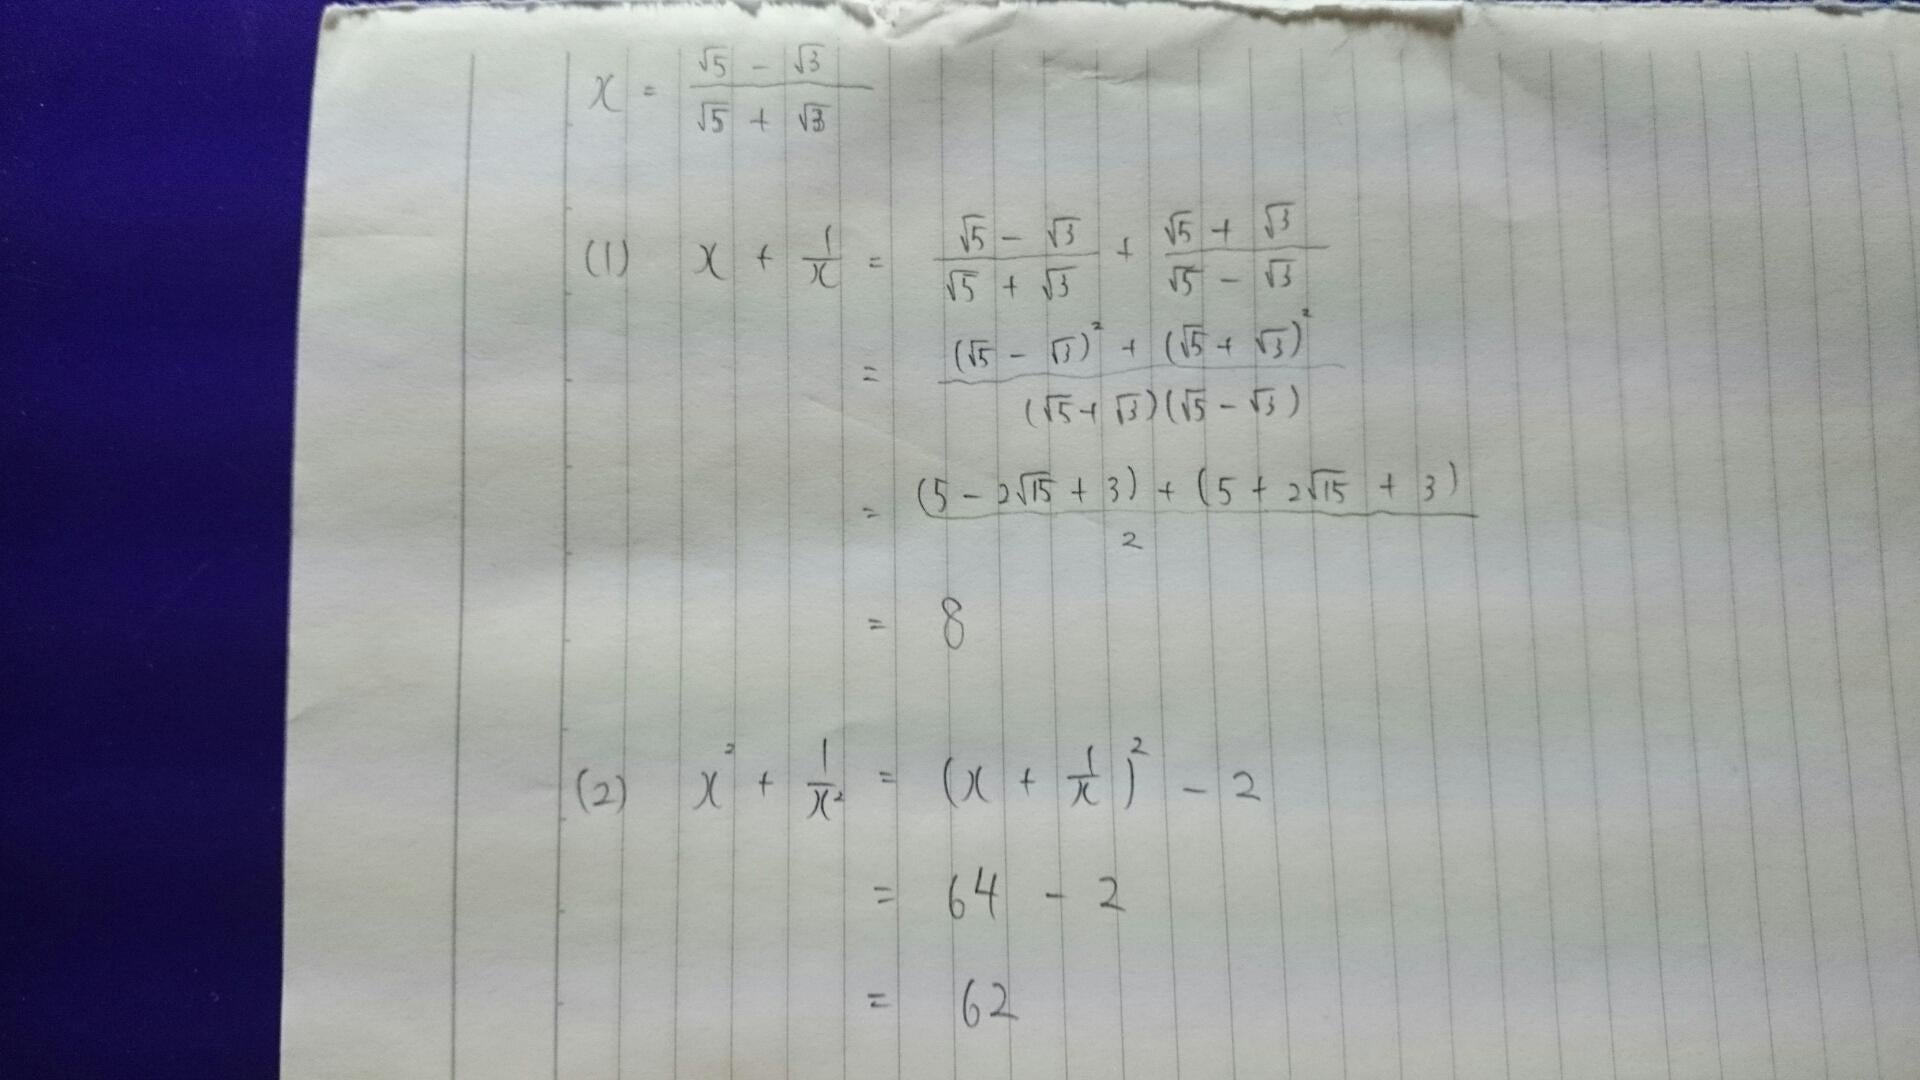 x = (√5 - √3)/(√5 + √3)
(1) x + 1/x = (√5 - √3)/(√5 + √3) + (√5 + √3)/(√5 - √3)
= ((√5 - √3)² + (√5 + √3)²)/((√5 + √3)(√5 - √3))
= ((5 - 2√15 + 3) + (5 + 2√15 + 3))/2
= 8
(2) x² + 1/x² = (x + 1/x)² - 2
= 64 - 2
= 62